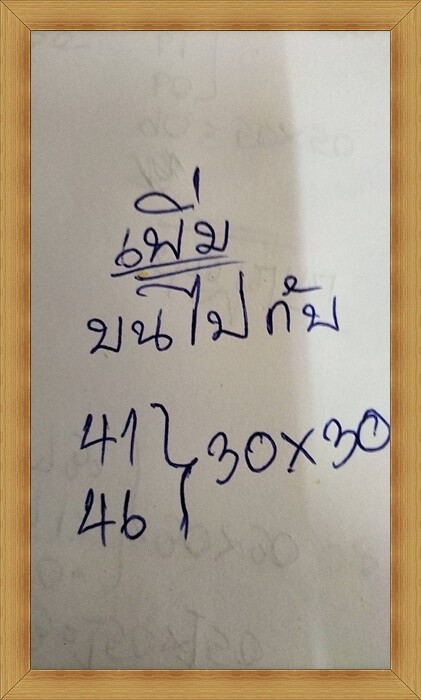 เพิ่ม
บนไปกับ
41 } 30×30
46